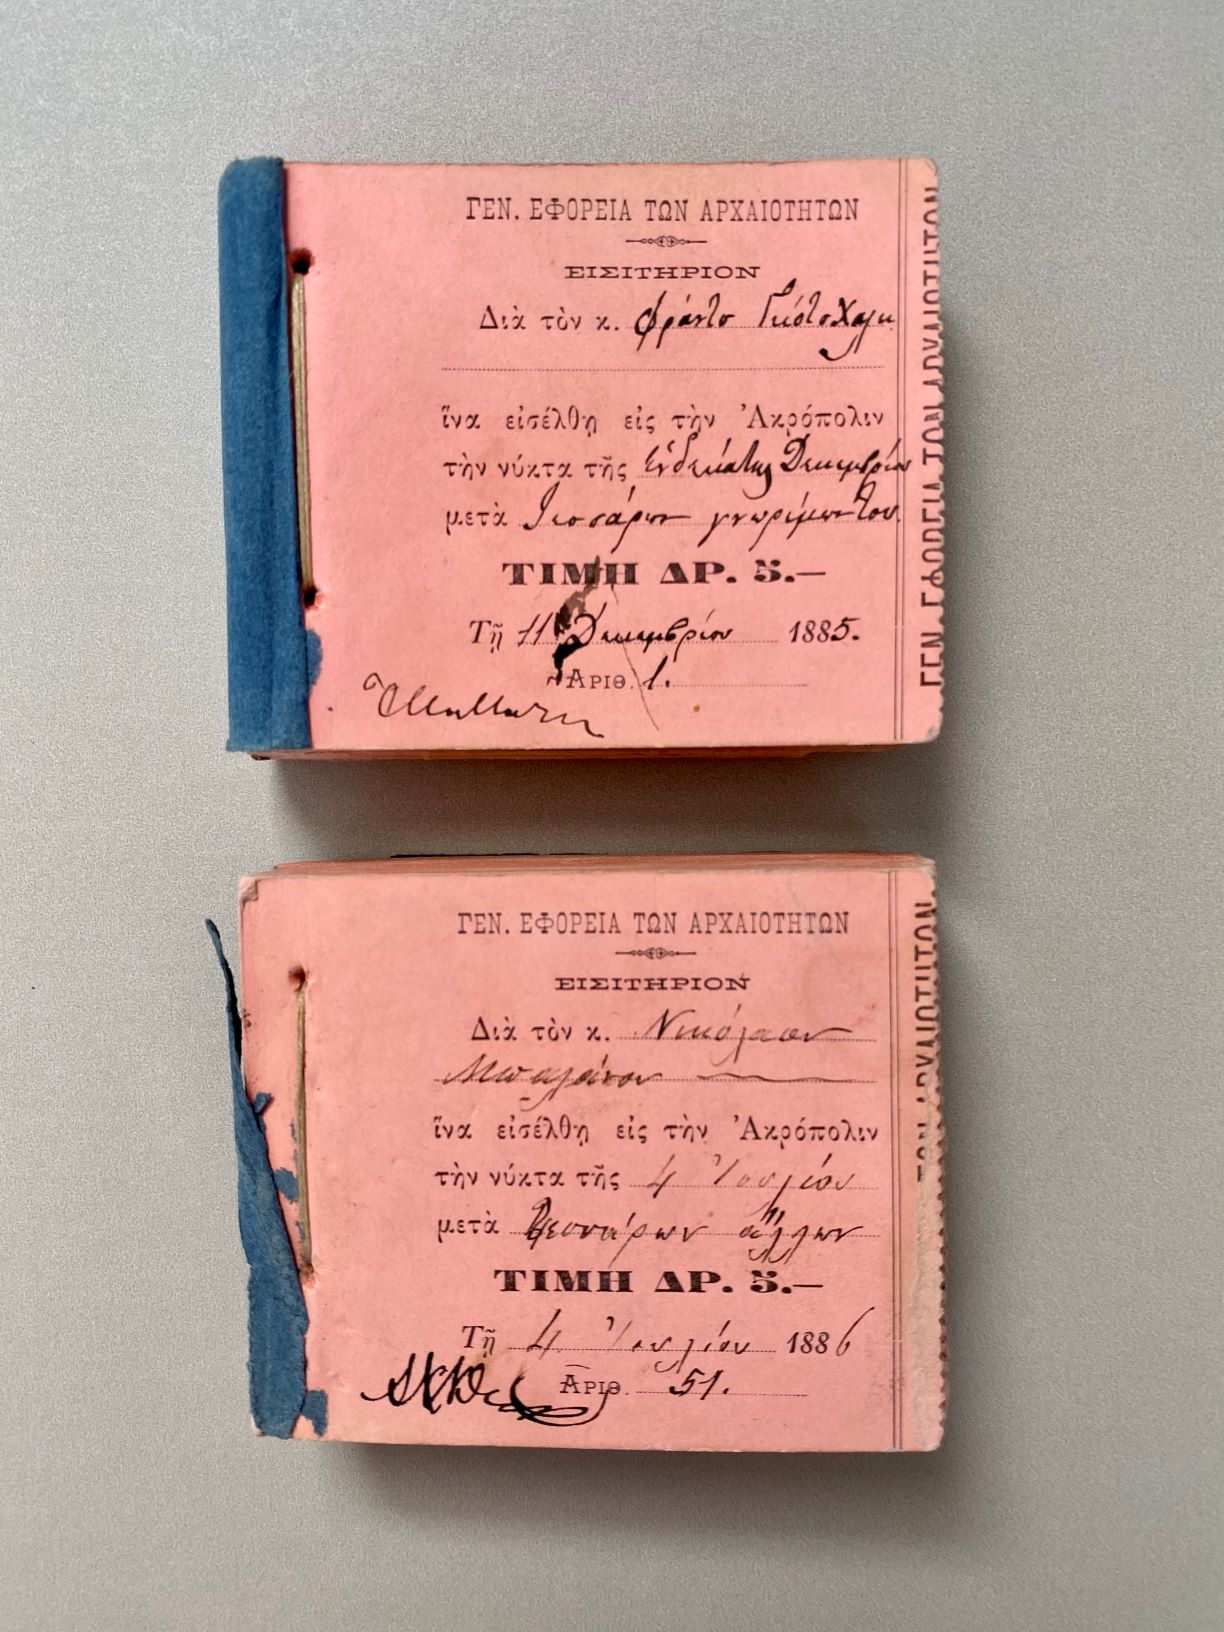 ΓΕΝ. ΕΦΟΡΕΙΑ ΤΩΝ ΑΡΧΑΙΟΤΗΤΩΝ
ΕΙΣΙΤΗΡΙΟΝ
Διὰ τὸν κ. Φράντσ
ἵνα εἰσέλθῃ εἰς τὴν Ἀκρόπολιν
τὴν νύκτα τῆς ἑνδεκάτης Δεκεμβρίου
μετὰ τεσσάρων γνωρίμων του.
ΤΙΜΗ ΔΡ. 5.—
Τῇ 11 Δεκεμβρίου 1885.
ΑΡΙΘ. 1.
ΓΕΝ. ΕΦΟΡΕΙΑ ΤΩΝ ΑΡΧΑΙΟΤΗΤΩΝ
ΓΕΝ. ΕΦΟΡΕΙΑ ΤΩΝ ΑΡΧΑΙΟΤΗΤΩΝ
ΕΙΣΙΤΗΡΙΟΝ
Διὰ τὸν κ. Νικόλαον
Μπαλάνον
ἵνα εἰσέλθῃ εἰς τὴν Ἀκρόπολιν
τὴν νύκτα τῆς 4 Ἰουλίου
μετὰ τεσσάρων ἄλλων
ΤΙΜΗ ΔΡ. 5.—
Τῇ 4 Ἰουλίου 1886
ΑΡΙΘ. 51.
ΤΩΝ ΑΡΧΑΙΟΤΗΤΩΝ